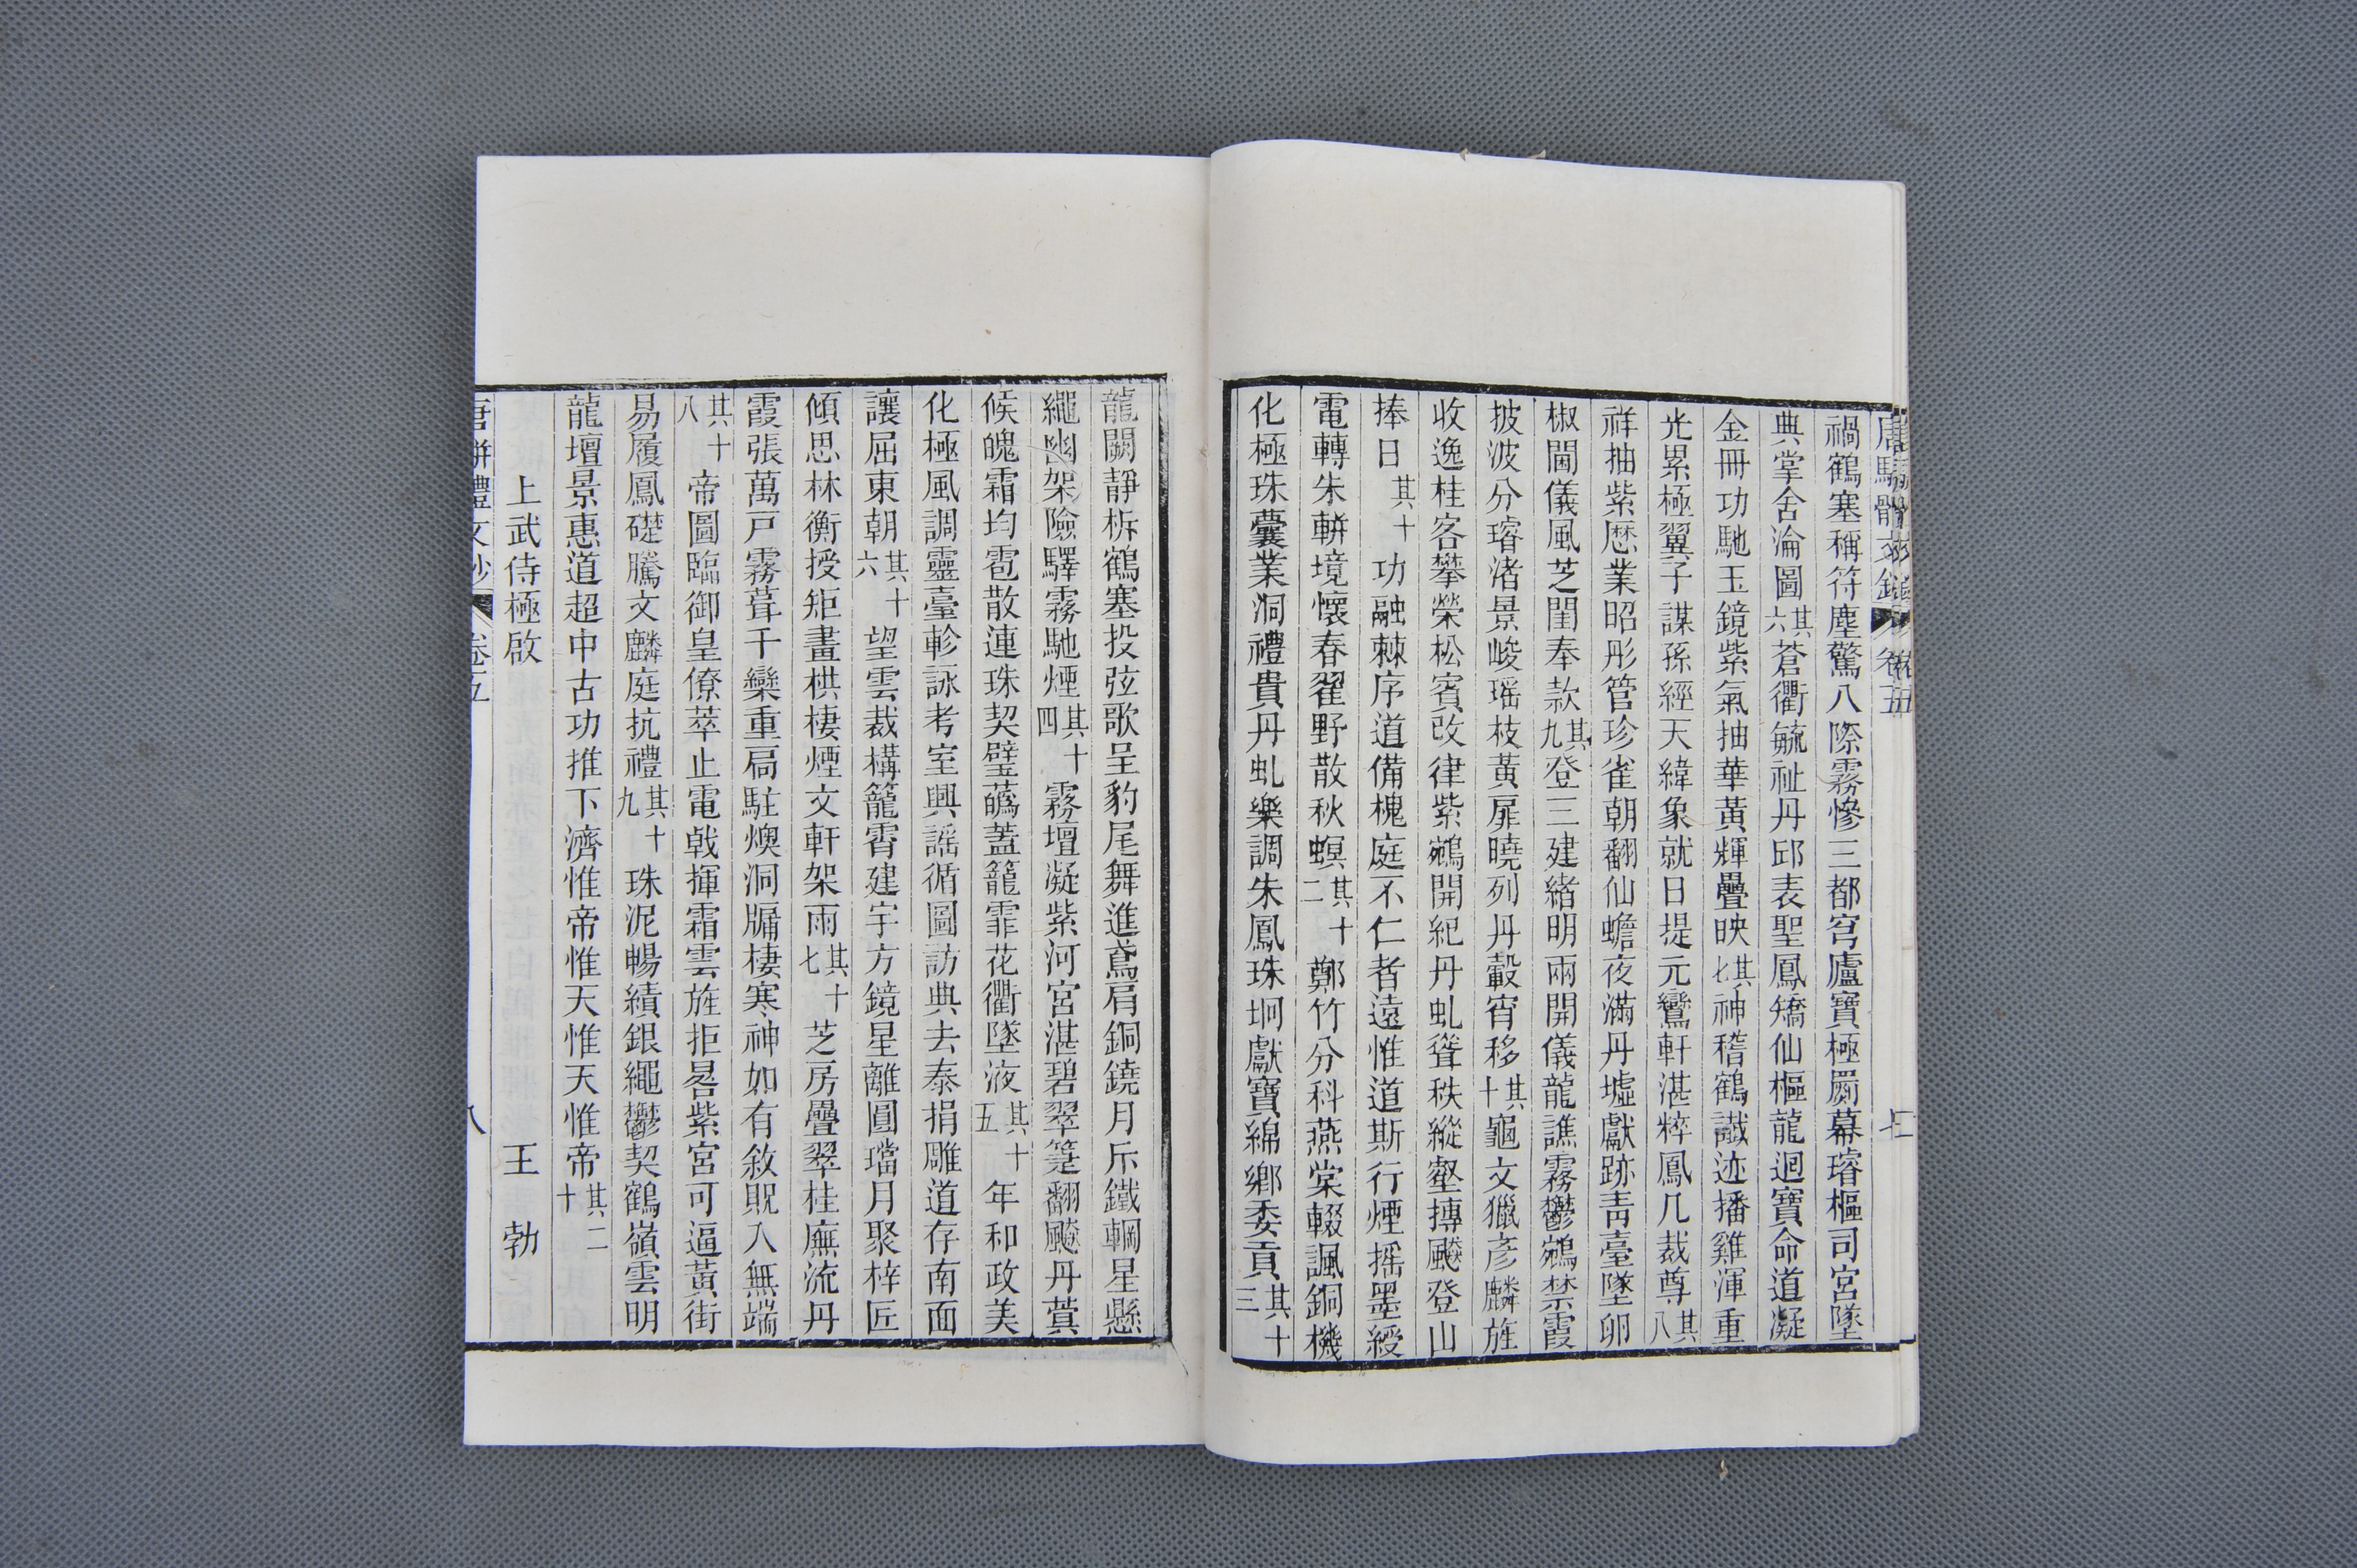 唐駢體文鈔 卷五 七
禍鶴塞稱符塵驚八際霧慘三都穹廬寶極罽幕璿樞司宮墜
典掌舍淪圖其六蒼衢毓祉丹邱表聖鳳矯仙樞龍迴寶命道凝
金冊功馳玉鏡紫氣抽華黃輝疊映其七神稽鶴讖迹播雞渾重
光累極翼子謀孫經天緯象就日提元鸞軒湛粹鳳几裁尊其八
祥抽紫厯業昭彤管珍雀朝翻仙蟾夜滿丹墟獻跡青臺墜卵
椒閫儀風芝閨奉款其九登三建緒明兩開儀龍譙霧鬱鵷禁霞
披波分璿渚景峻瑶枝黃扉曉列丹轂宵移其十龜文獵彦麟旌
收逸桂客攀榮松賓改律紫鵷開紀丹虬聳秩縱壑摶颷登山
捧日其十功融棘序道備槐庭不仁者遠惟道斯行煙摇墨綬
電轉朱軿境懷春翟野散秋螟其十二鄭竹分科燕棠輟諷銅機
化極珠囊業洞禮貴丹虬樂調朱鳳珠坰獻寶綿鄉委貢其十三
龍闕靜柝鶴塞投弦歌呈豹尾舞進鳶肩銅鐃月斥鐵輞星懸
繩幽架險驛霧馳煙其十四霧壇凝紫河宮湛碧翠箑翻颷丹蓂
候魄霜均雹散連珠契璧蔿蓋籠霏花衢墜液其十五年和政美
化極風調靈臺軫詠考室興謡循圖訪典去泰捐雕道存南面
讓屈東朝其十六望雲裁構籠霄建宇方鏡星離圓璫月聚梓匠
傾思林衡授矩畫栱棲煙文軒架雨其十七芝房疊翠桂廡流丹
霞張萬戸霧葺千欒重扃駐燠洞牖棲寒神如有敘貺入無端
其十八帝圖臨御皇僚萃止電戟揮霜雲旌拒晷紫宮可逼黃街
易履鳳礎騰文麟庭抗禮其十九珠泥暢績銀繩鬱契鶴嶺雲明
龍壇景惠道超中古功推下濟惟帝惟天惟天惟帝其二十
上武侍極啟 王勃
唐駢體文鈔 卷五 八